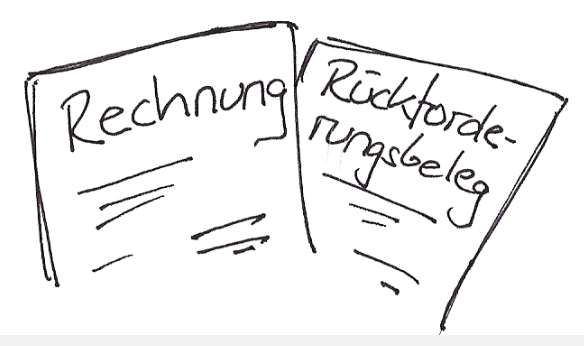 Rechnung
Rückforde-
rungsbeleg